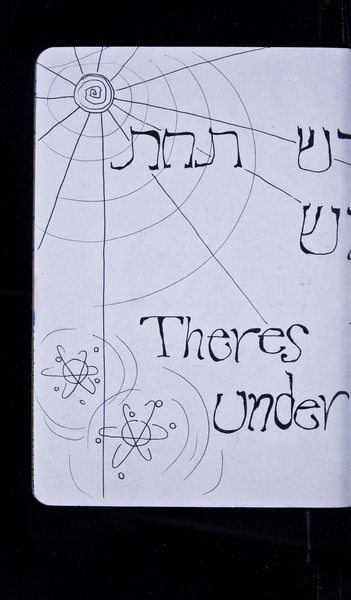 דש תחת
ש
Theres
under